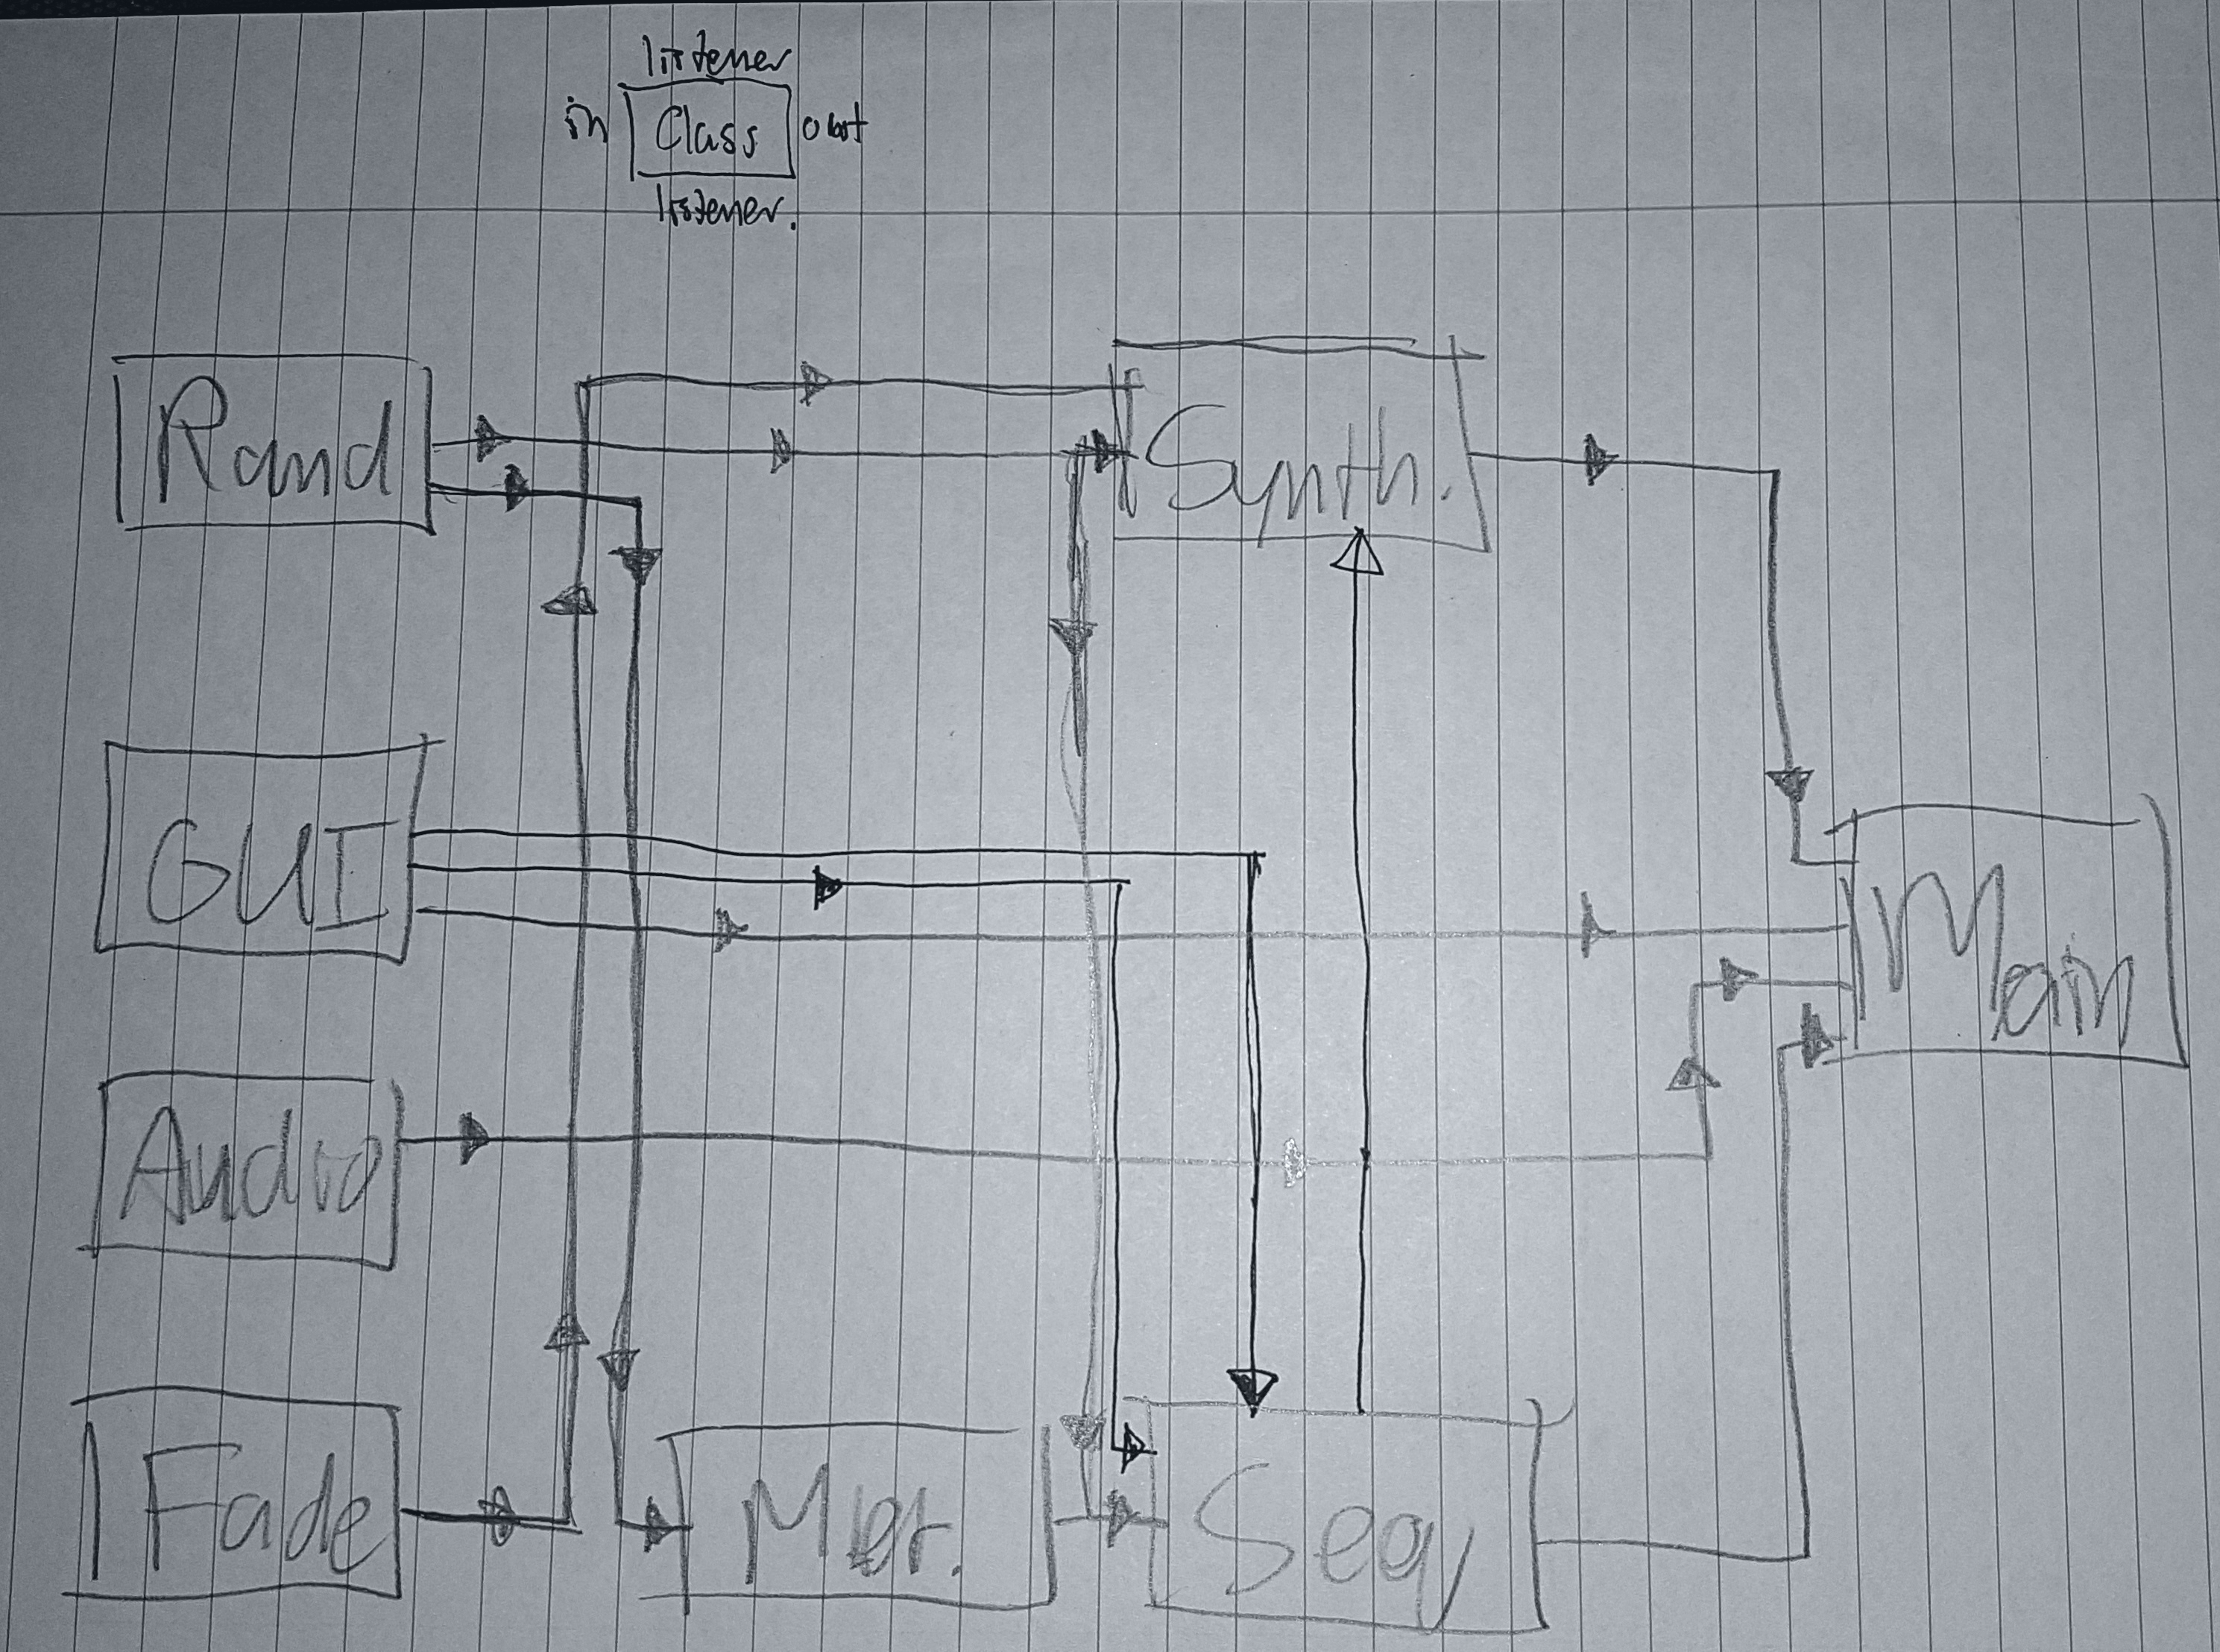 listener
in Class out
listener.
Rand
Synth.
GUI
Main
Audio
Fade
Seq